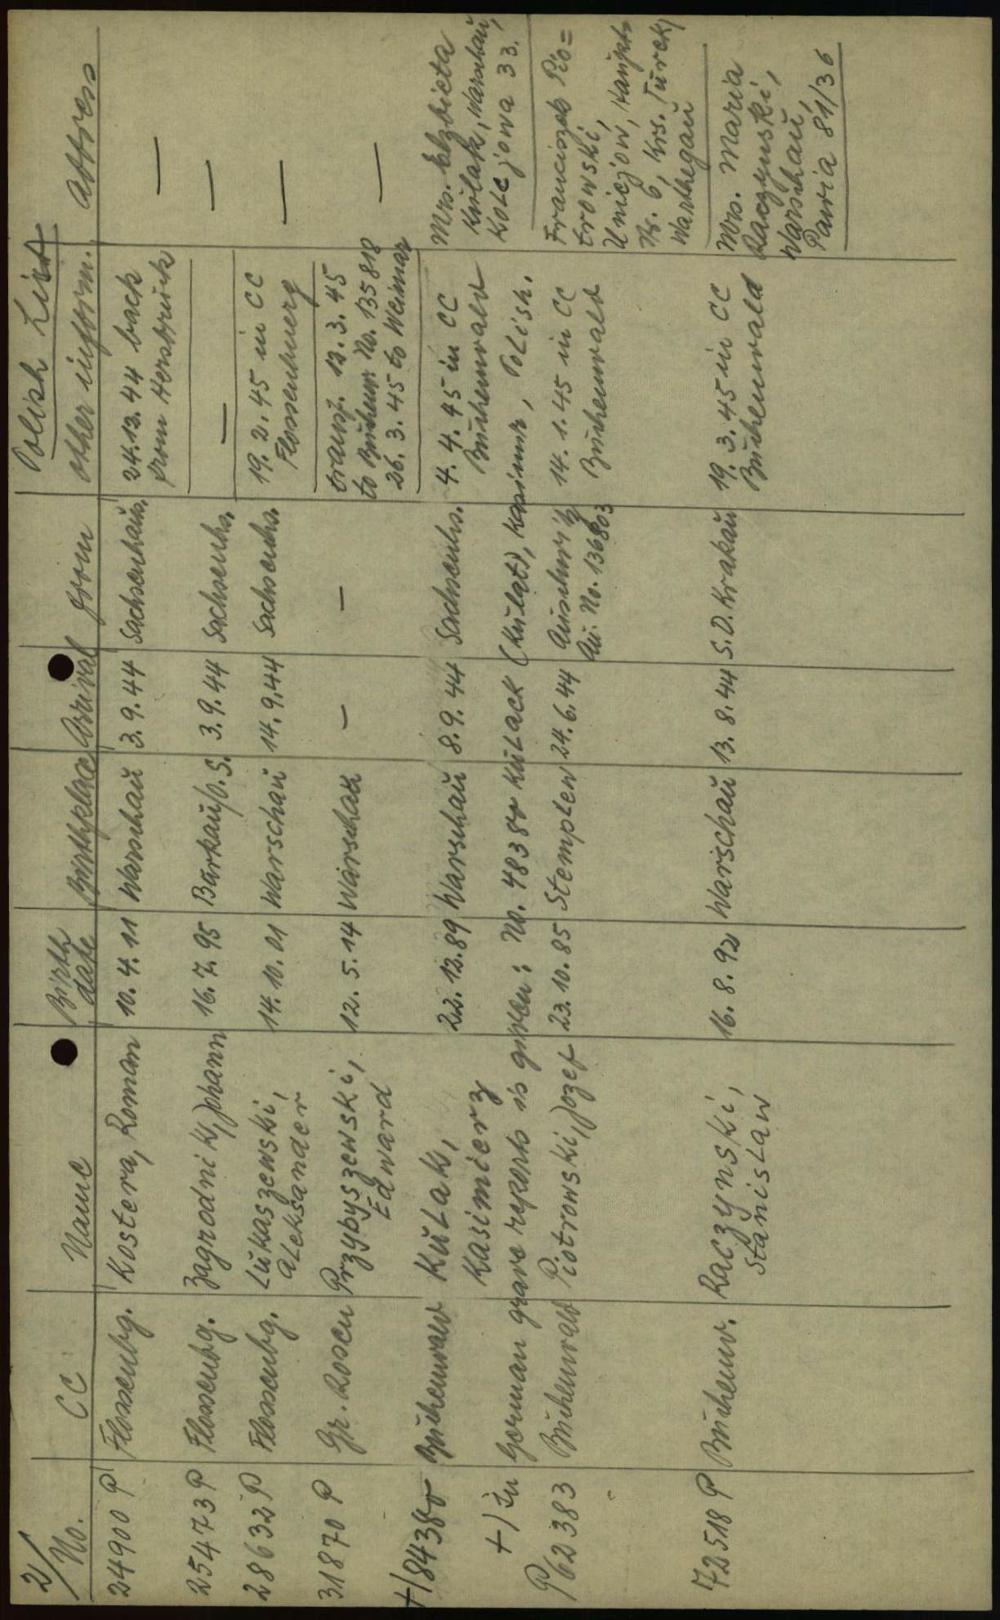 2/ Polish List
No. CC Name Birth date Birthplace Arrival from other inform. Address
24900 P Flossenbg. Kostera, Roman 10. 4. 11 Warschau 3. 9. 44 Sachsenhaus. 24.12.44 back —
from Hersbruck
25473 P Flossenbg. Zagrodnik, Johann 16. 7. 95 Burkau/O.S. 3. 9. 44 Sachsenhs. — —
28632 P Flossenbg. Lukaszewski, 14. 10. 01 Warschau 14. 9. 44 Sachsenhs. 19. 2. 45 in CC —
Aleksander Flossenburg
31870 P Gr. Rosen Przybyszewski, 12. 5. 14 Warschau — — transf. 12. 3. 45 —
Edward to Buchenw. No. 135818
26. 3. 45 to Weimar
+/ 84380 Buchenwald Kulak, 22. 12. 89 Warschau 8. 9. 44 Sachsenhs. 4. 4. 45 in CC Mrs. Elzbieta
Kasimierz Buchenwald Kulak, Warschau,
Kolejowa 33.
+/ In German grave reports is given: No. 48380 Kulack (Kulat), Kasimir, Polish.
P 62383 Buchenwald Piotrowski, Jozef 23. 10. 85 Stemplew 24. 6. 44 Auschwitz 14. 1. 45 in CC Franciszek Pio=
Au. No. 136803 Buchenwald trowski,
Uniejow, Haupts
Nr. 6, Krs. Turek/
Warthegau
72518 P Buchenw. Raczynski, 16. 8. 92 Warschau 13. 8. 44 S.D. Krakau 19. 3. 45 in CC Mrs. Maria
Stanislaw Buchenwald Raczynski,
Warschau,
Pawia 81/36